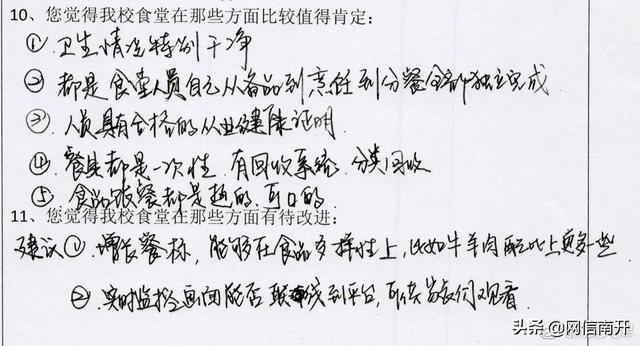 10、您觉得我校食堂在那些方面比较值得肯定：
① 卫生情况特别干净
② 都是食堂人员自己从备品到烹饪到分餐全部独立完成
③ 人员具有合格的从业健康证明
④ 餐具都是一次性，有回收系统，分类回收
⑤ 食品饭餐都是热的，可口的
11、您觉得我校食堂在那些方面有待改进：
建议① 增长餐标，能够在食品多样性上，比如牛羊肉配比上更多一些
② 实时监控画面能否联线到平台，可供家长们观看
头条 @网信南开